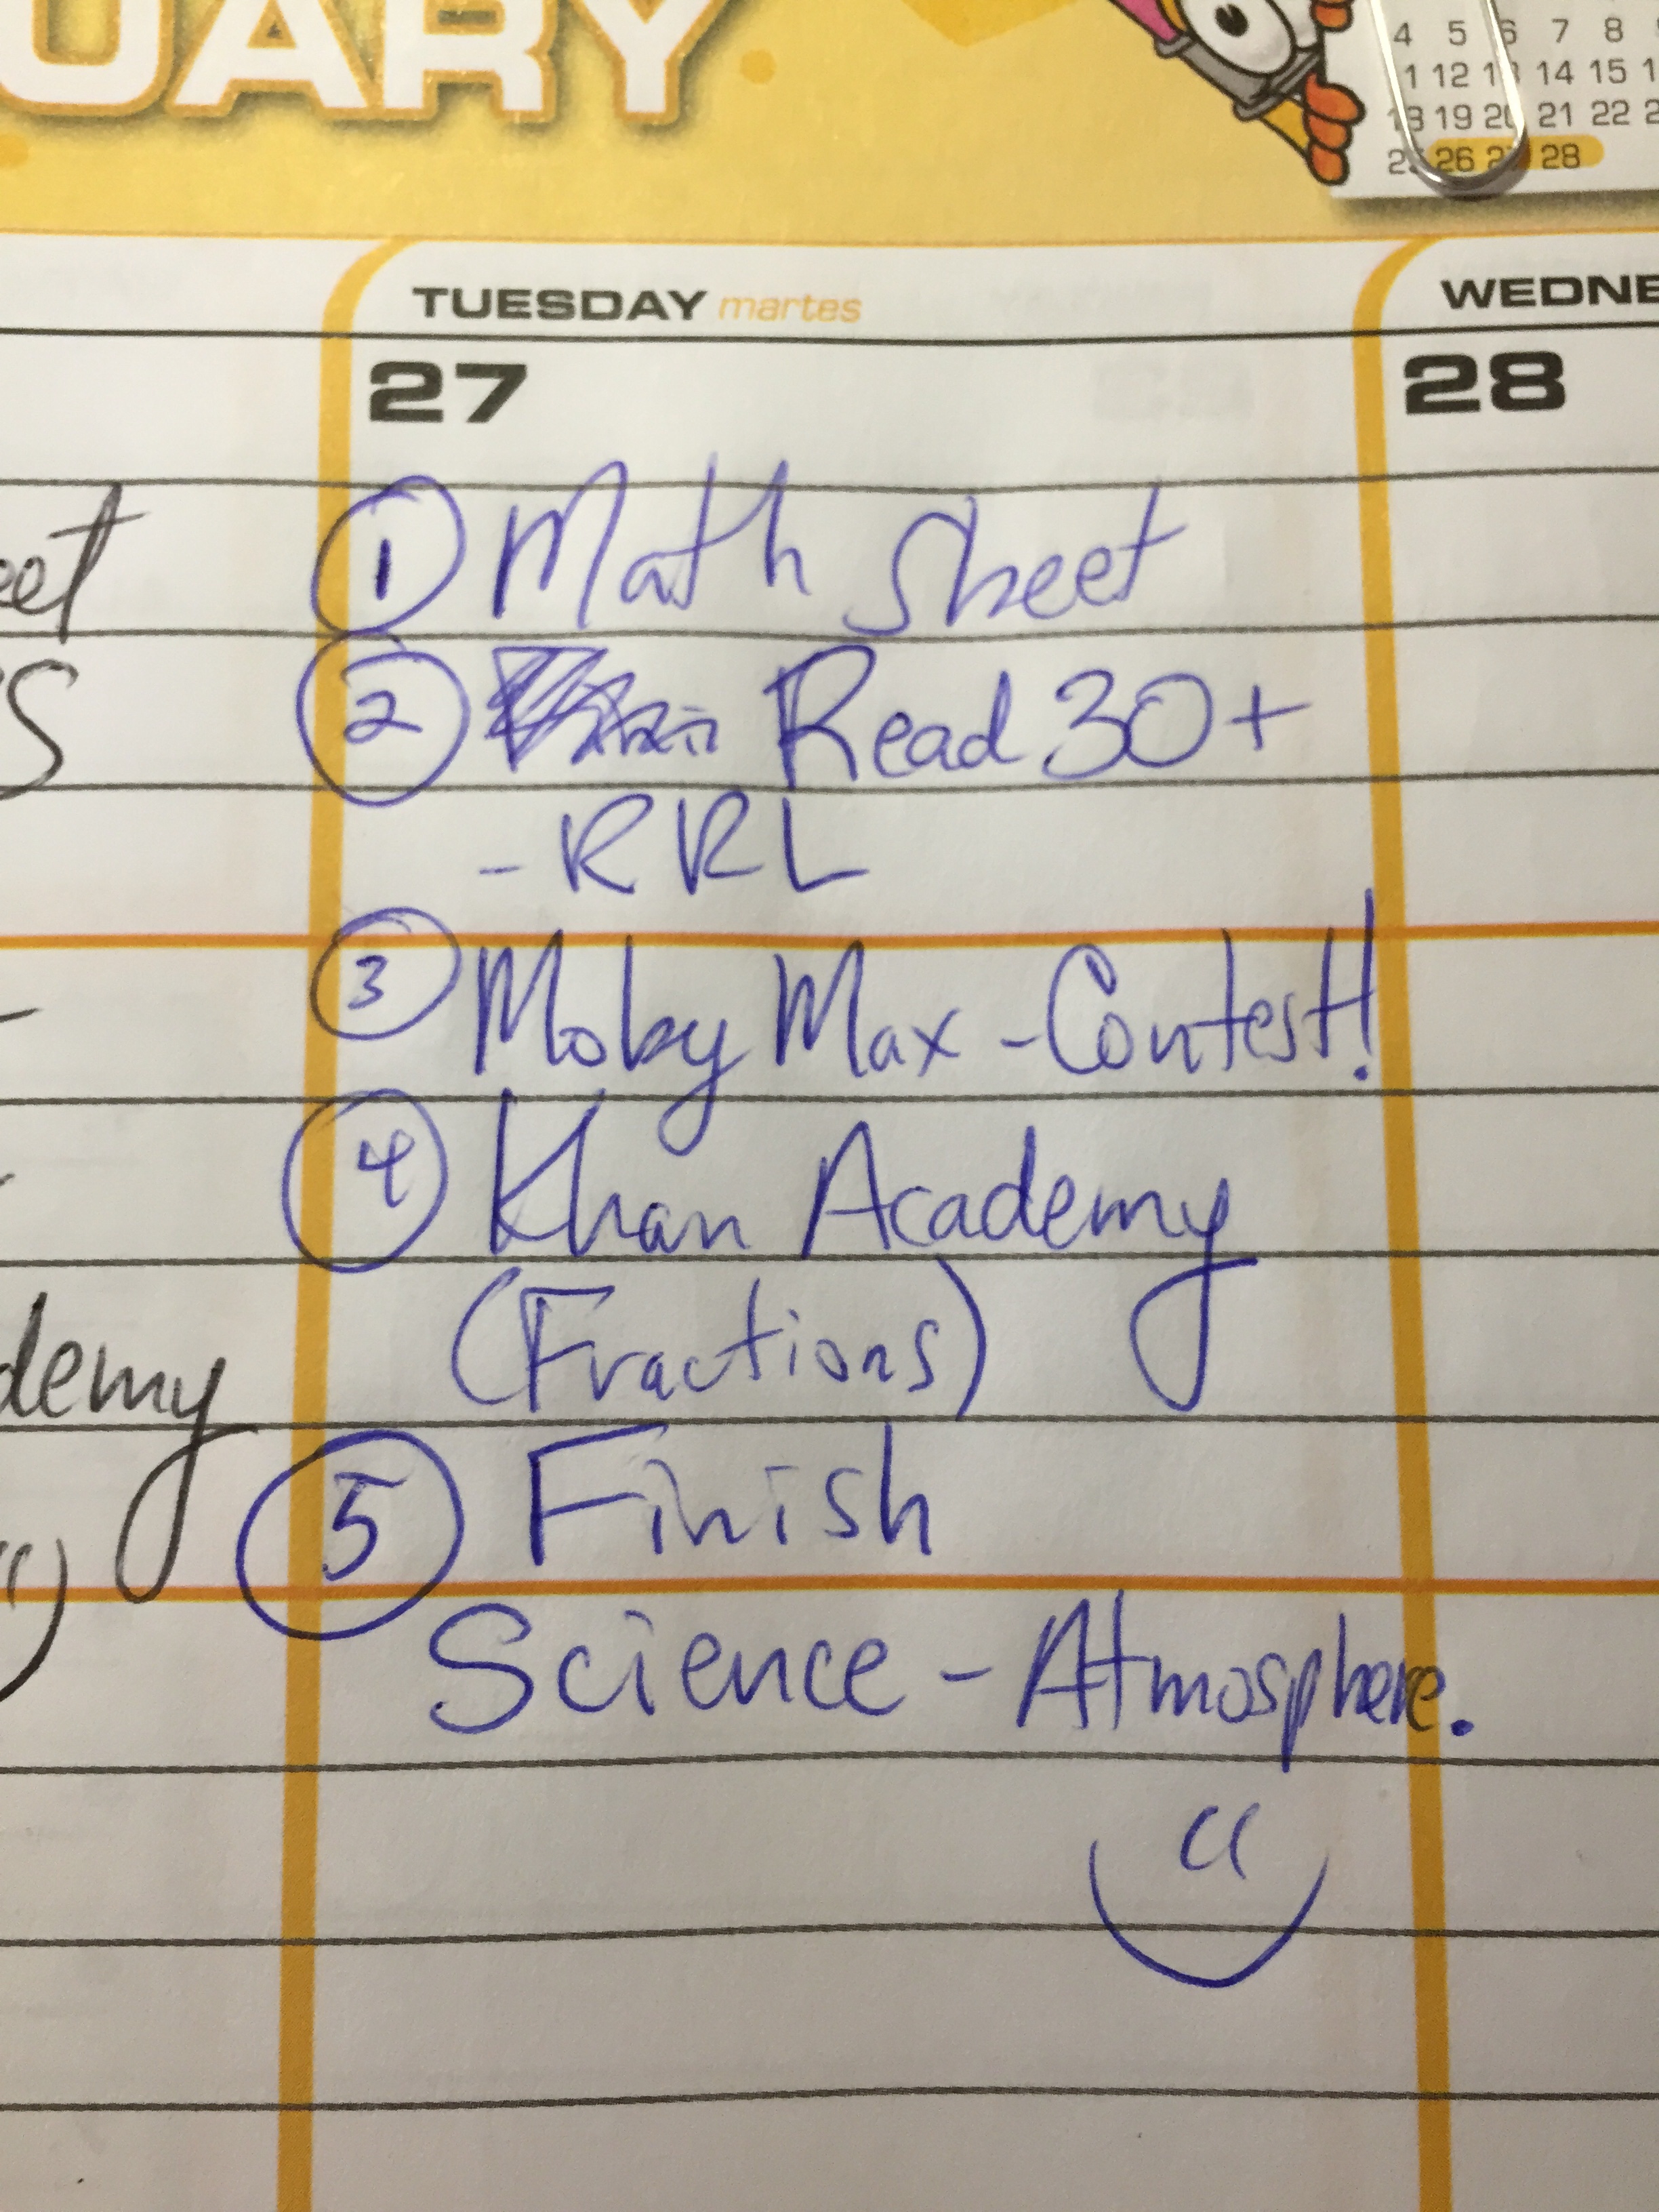 UARY
4 5 6 7 8
11 12 13 14 15
18 19 20 21 22
25 26 27 28
TUESDAY martes
WEDNE
27
28
eet
① Math Sheet
S
② Read 30+
- RRL
③ Moby Max - Contest!
④ Khan Academy
(Fractions)
demy
⑤ Finish
Science - Atmosphere.